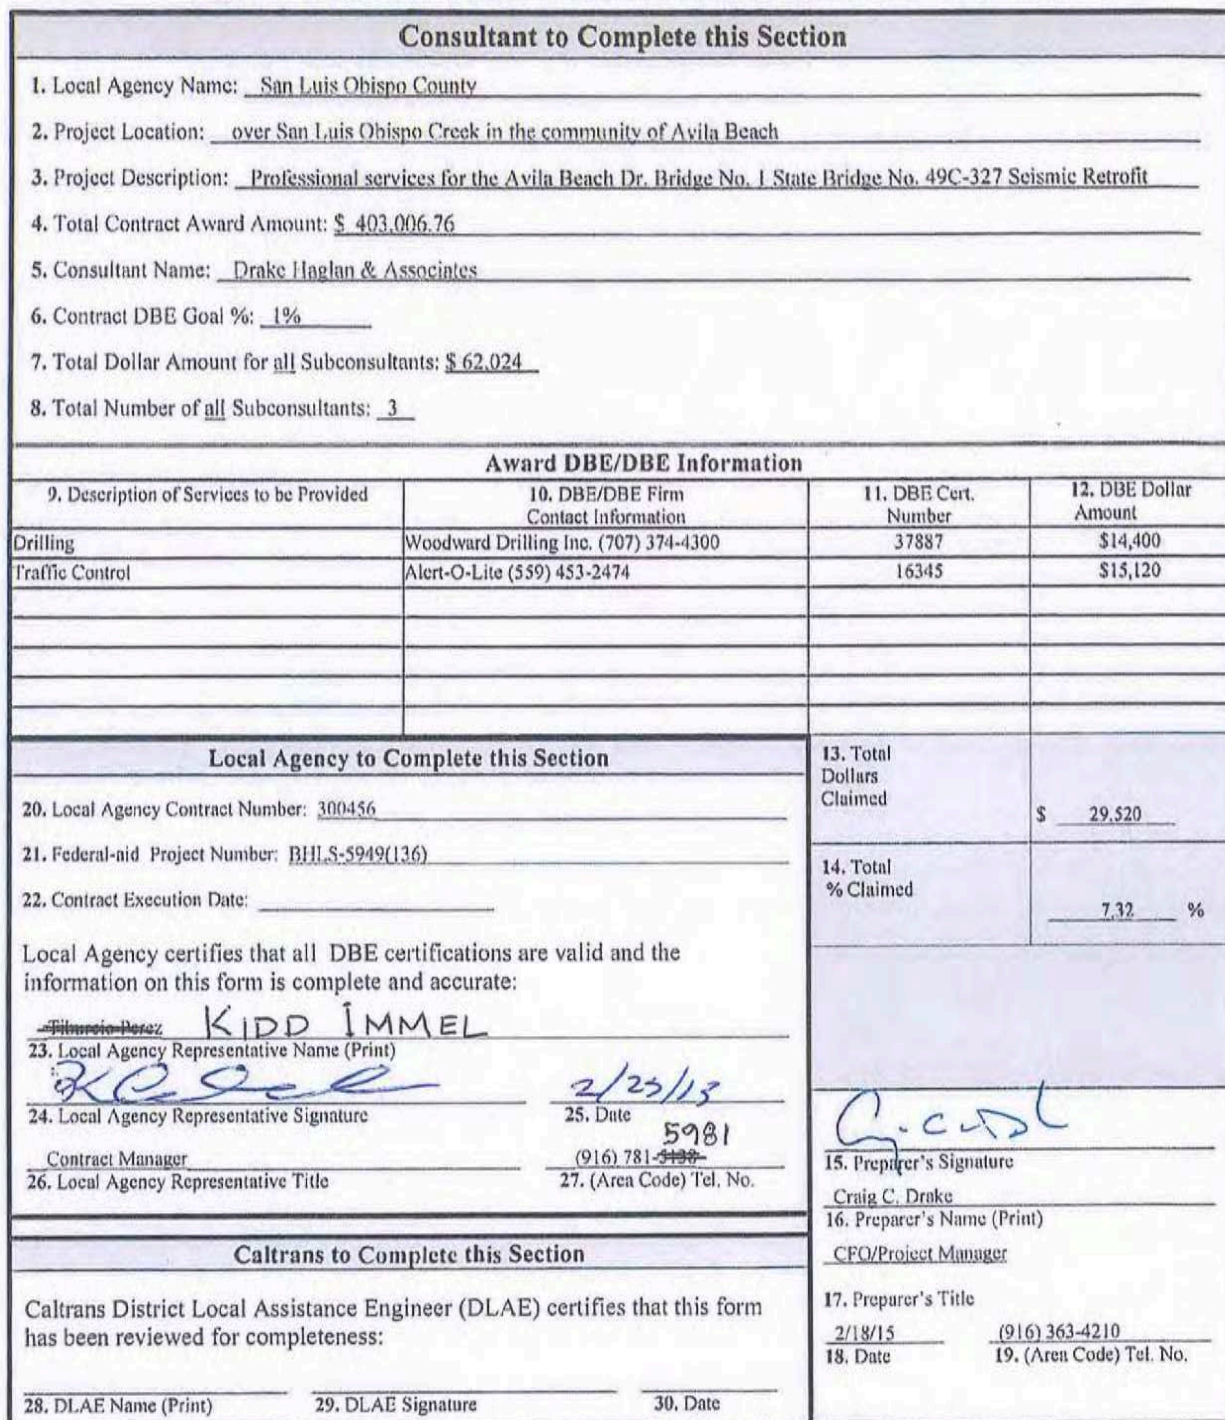 Consultant to Complete this Section
1. Local Agency Name: San Luis Obispo County
2. Project Location: over San Luis Obispo Creek in the community of Avila Beach
3. Project Description: Professional services for the Avila Beach Dr. Bridge No. 1 State Bridge No. 49C-327 Seismic Retrofit
4. Total Contract Award Amount: $ 403,006.76
5. Consultant Name: Drake Haglan & Associates
6. Contract DBE Goal %: 1%
7. Total Dollar Amount for all Subconsultants: $ 62,024
8. Total Number of all Subconsultants: 3
Award DBE/DBE Information
9. Description of Services to be Provided
10. DBE/DBE Firm
Contact Information
11. DBE Cert.
Number
12. DBE Dollar
Amount
Drilling Woodward Drilling Inc. (707) 374-4300 37887 $14,400
Traffic Control Alert-O-Lite (559) 453-2474 16345 $15,120
Local Agency to Complete this Section
20. Local Agency Contract Number: 300456
21. Federal-aid Project Number: BHLS-5949(136)
22. Contract Execution Date:
Local Agency certifies that all DBE certifications are valid and the
information on this form is complete and accurate:
Tiburcio Perez KIDD IMMEL
23. Local Agency Representative Name (Print)
24. Local Agency Representative Signature
25. Date
5981
Contract Manager (916) 781-5138
26. Local Agency Representative Title 27. (Area Code) Tel. No.
Caltrans to Complete this Section
Caltrans District Local Assistance Engineer (DLAE) certifies that this form
has been reviewed for completeness:
28. DLAE Name (Print) 29. DLAE Signature 30. Date
13. Total
Dollars
Claimed
$ 29,520
14. Total
% Claimed
7.32 %
15. Preparer's Signature
Craig C. Drake
16. Preparer's Name (Print)
CFO/Project Manager
17. Preparer's Title
2/18/15 (916) 363-4210
18. Date 19. (Area Code) Tel. No.